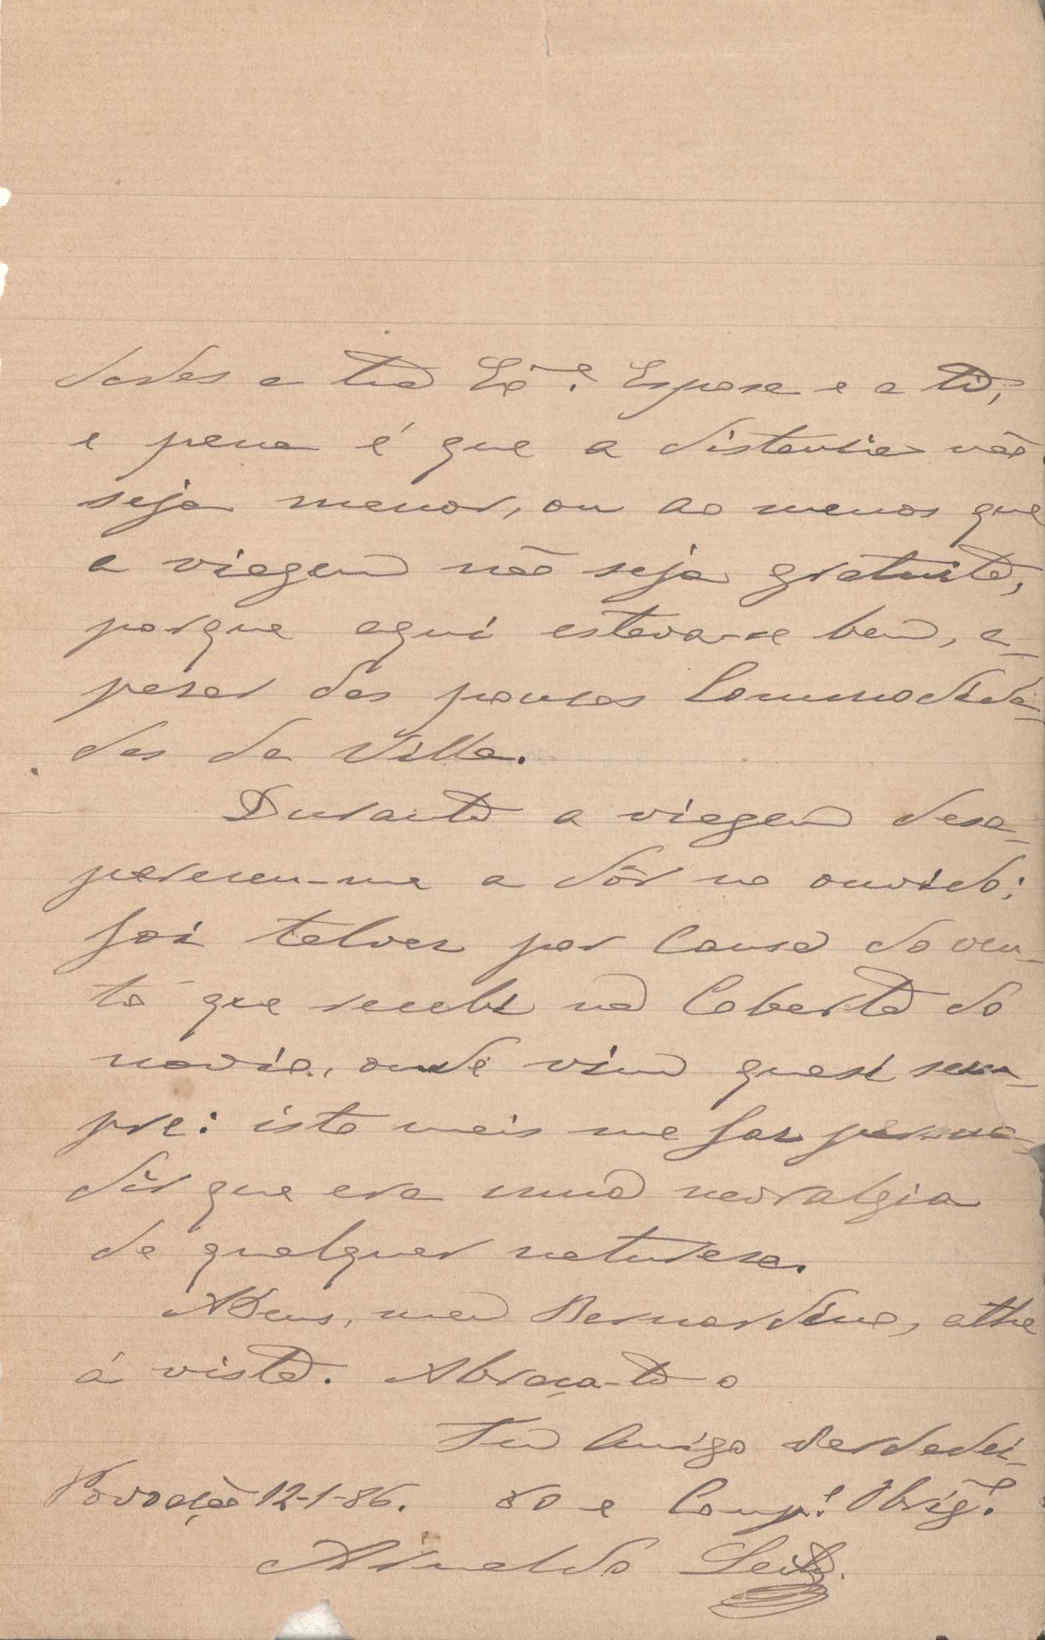 dades a tua Exª. Esposa e a ti,
e pena é que a distancia não
seja menor, ou ao menos que
a viagem não seja gratuita,
porque aqui estava-se bem, a-
pesar das poucas Commodida-
des da Villa.
Durante a viagem desa-
pareceu-me a dôr no ouvido;
foi talvez por causa do ven-
to que recebi na Coberta do
navio, onde vim quasi sem-
pre: isto mais me faz persua-
dir que era uma nevralgia
de qualquer natureza.
Adeus, meu Bernardino, athe
á vista. Abraça-te o
Teu Amigo verdadei-
Povoação 12-1-86. ro e Comp.e Obrig.o
Arnaldo